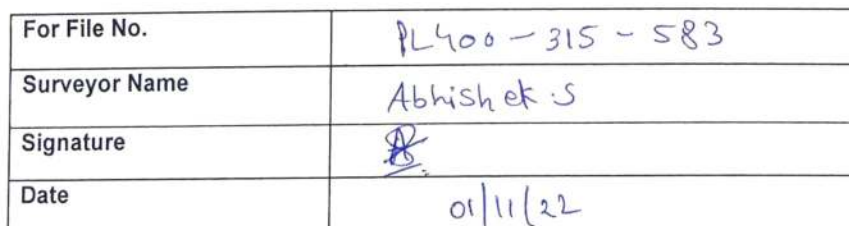 For File No. PL400-315-583
Surveyor Name Abhishek.S
Signature
Date 01/11/22